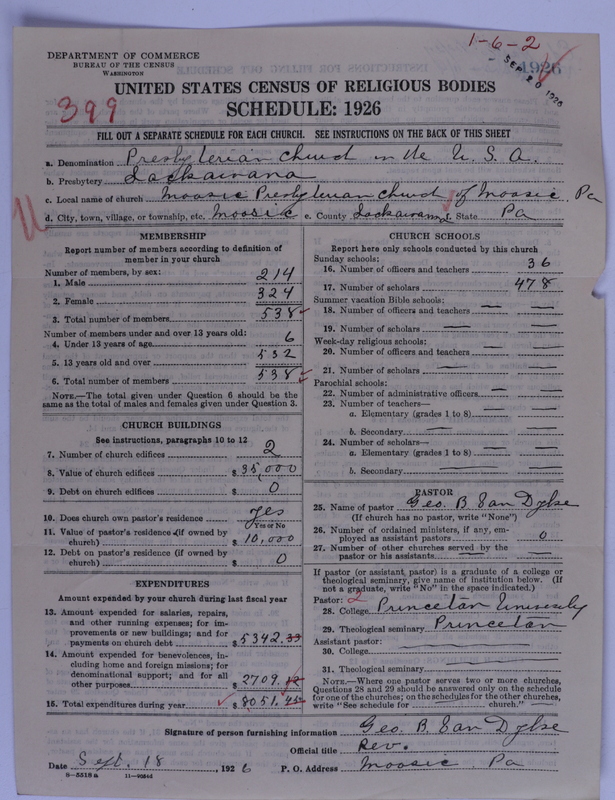 1-6-2
DEPARTMENT OF COMMERCE
BUREAU OF THE CENSUS
WASHINGTON
1926
SEP 20 1926
UNITED STATES CENSUS OF RELIGIOUS BODIES
399
SCHEDULE: 1926
FILL OUT A SEPARATE SCHEDULE FOR EACH CHURCH. SEE INSTRUCTIONS ON THE BACK OF THIS SHEET
a. Denomination Presbyterian Church in the U. S. A.
b. Presbytery Lackawanna
c. Local name of church Moosic Presbyterian Church of Moosic Pa
d. City, town, village, or township, etc. Moosic e. County Lackawanna State Pa
11
MEMBERSHIP
Report number of members according to definition of
member in your church
Number of members, by sex:
1. Male 214
2. Female 324
3. Total number of members 538
Number of members under and over 13 years old:
4. Under 13 years of age 6
5. 13 years old and over 532
6. Total number of members 538
NOTE.—The total given under Question 6 should be the
same as the total of males and females given under Question 3.
CHURCH BUILDINGS
See instructions, paragraphs 10 to 12
7. Number of church edifices 2
8. Value of church edifices $35,000
9. Debt on church edifices $ 0
10. Does church own pastor's residence yes
Yes or No
11. Value of pastor's residence (if owned by
church) $ 10,000
12. Debt on pastor's residence (if owned by
church) $ 0
EXPENDITURES
Amount expended by your church during last fiscal year
13. Amount expended for salaries, repairs,
and other running expenses; for im-
provements or new buildings; and for
payments on church debt $5342.33
14. Amount expended for benevolences, in-
cluding home and foreign missions; for
denominational support; and for all
other purposes $ 2709.12
15. Total expenditures during year $8051.45
CHURCH SCHOOLS
Report here only schools conducted by this church
Sunday schools:
16. Number of officers and teachers 36
17. Number of scholars 478
Summer vacation Bible schools:
18. Number of officers and teachers
19. Number of scholars
Week-day religious schools:
20. Number of officers and teachers
21. Number of scholars
Parochial schools:
22. Number of administrative officers
23. Number of teachers—
a. Elementary (grades 1 to 8)
b. Secondary
24. Number of scholars—
a. Elementary (grades 1 to 8)
b. Secondary
PASTOR
25. Name of pastor Geo. B. Van Dyke
(If church has no pastor, write "None")
26. Number of ordained ministers, if any, em-
ployed as assistant pastors 0
27. Number of other churches served by the
pastor or his assistants
If pastor (or assistant pastor) is a graduate of a college or
theological seminary, give name of institution below. (If
not a graduate, write "No" in the space indicated.)
Pastor: 2
28. College Princeton University
29. Theological seminary Princeton
Assistant pastor:
30. College
31. Theological seminary
NOTE.—Where one pastor serves two or more churches,
Questions 28 and 29 should be answered only on the schedule
for one of the churches; on the schedules for the other churches,
write "See schedule for church."
Signature of person furnishing information Geo. B. Van Dyke
Official title Rev.
Date Sept. 18, 1926 P. O. Address Moosic Pa
8-5518a 11-9054d